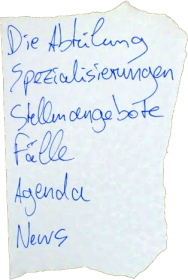 Die Abteilung
Spezialisierungen
Stellenangebote
Fälle
Agenda
News